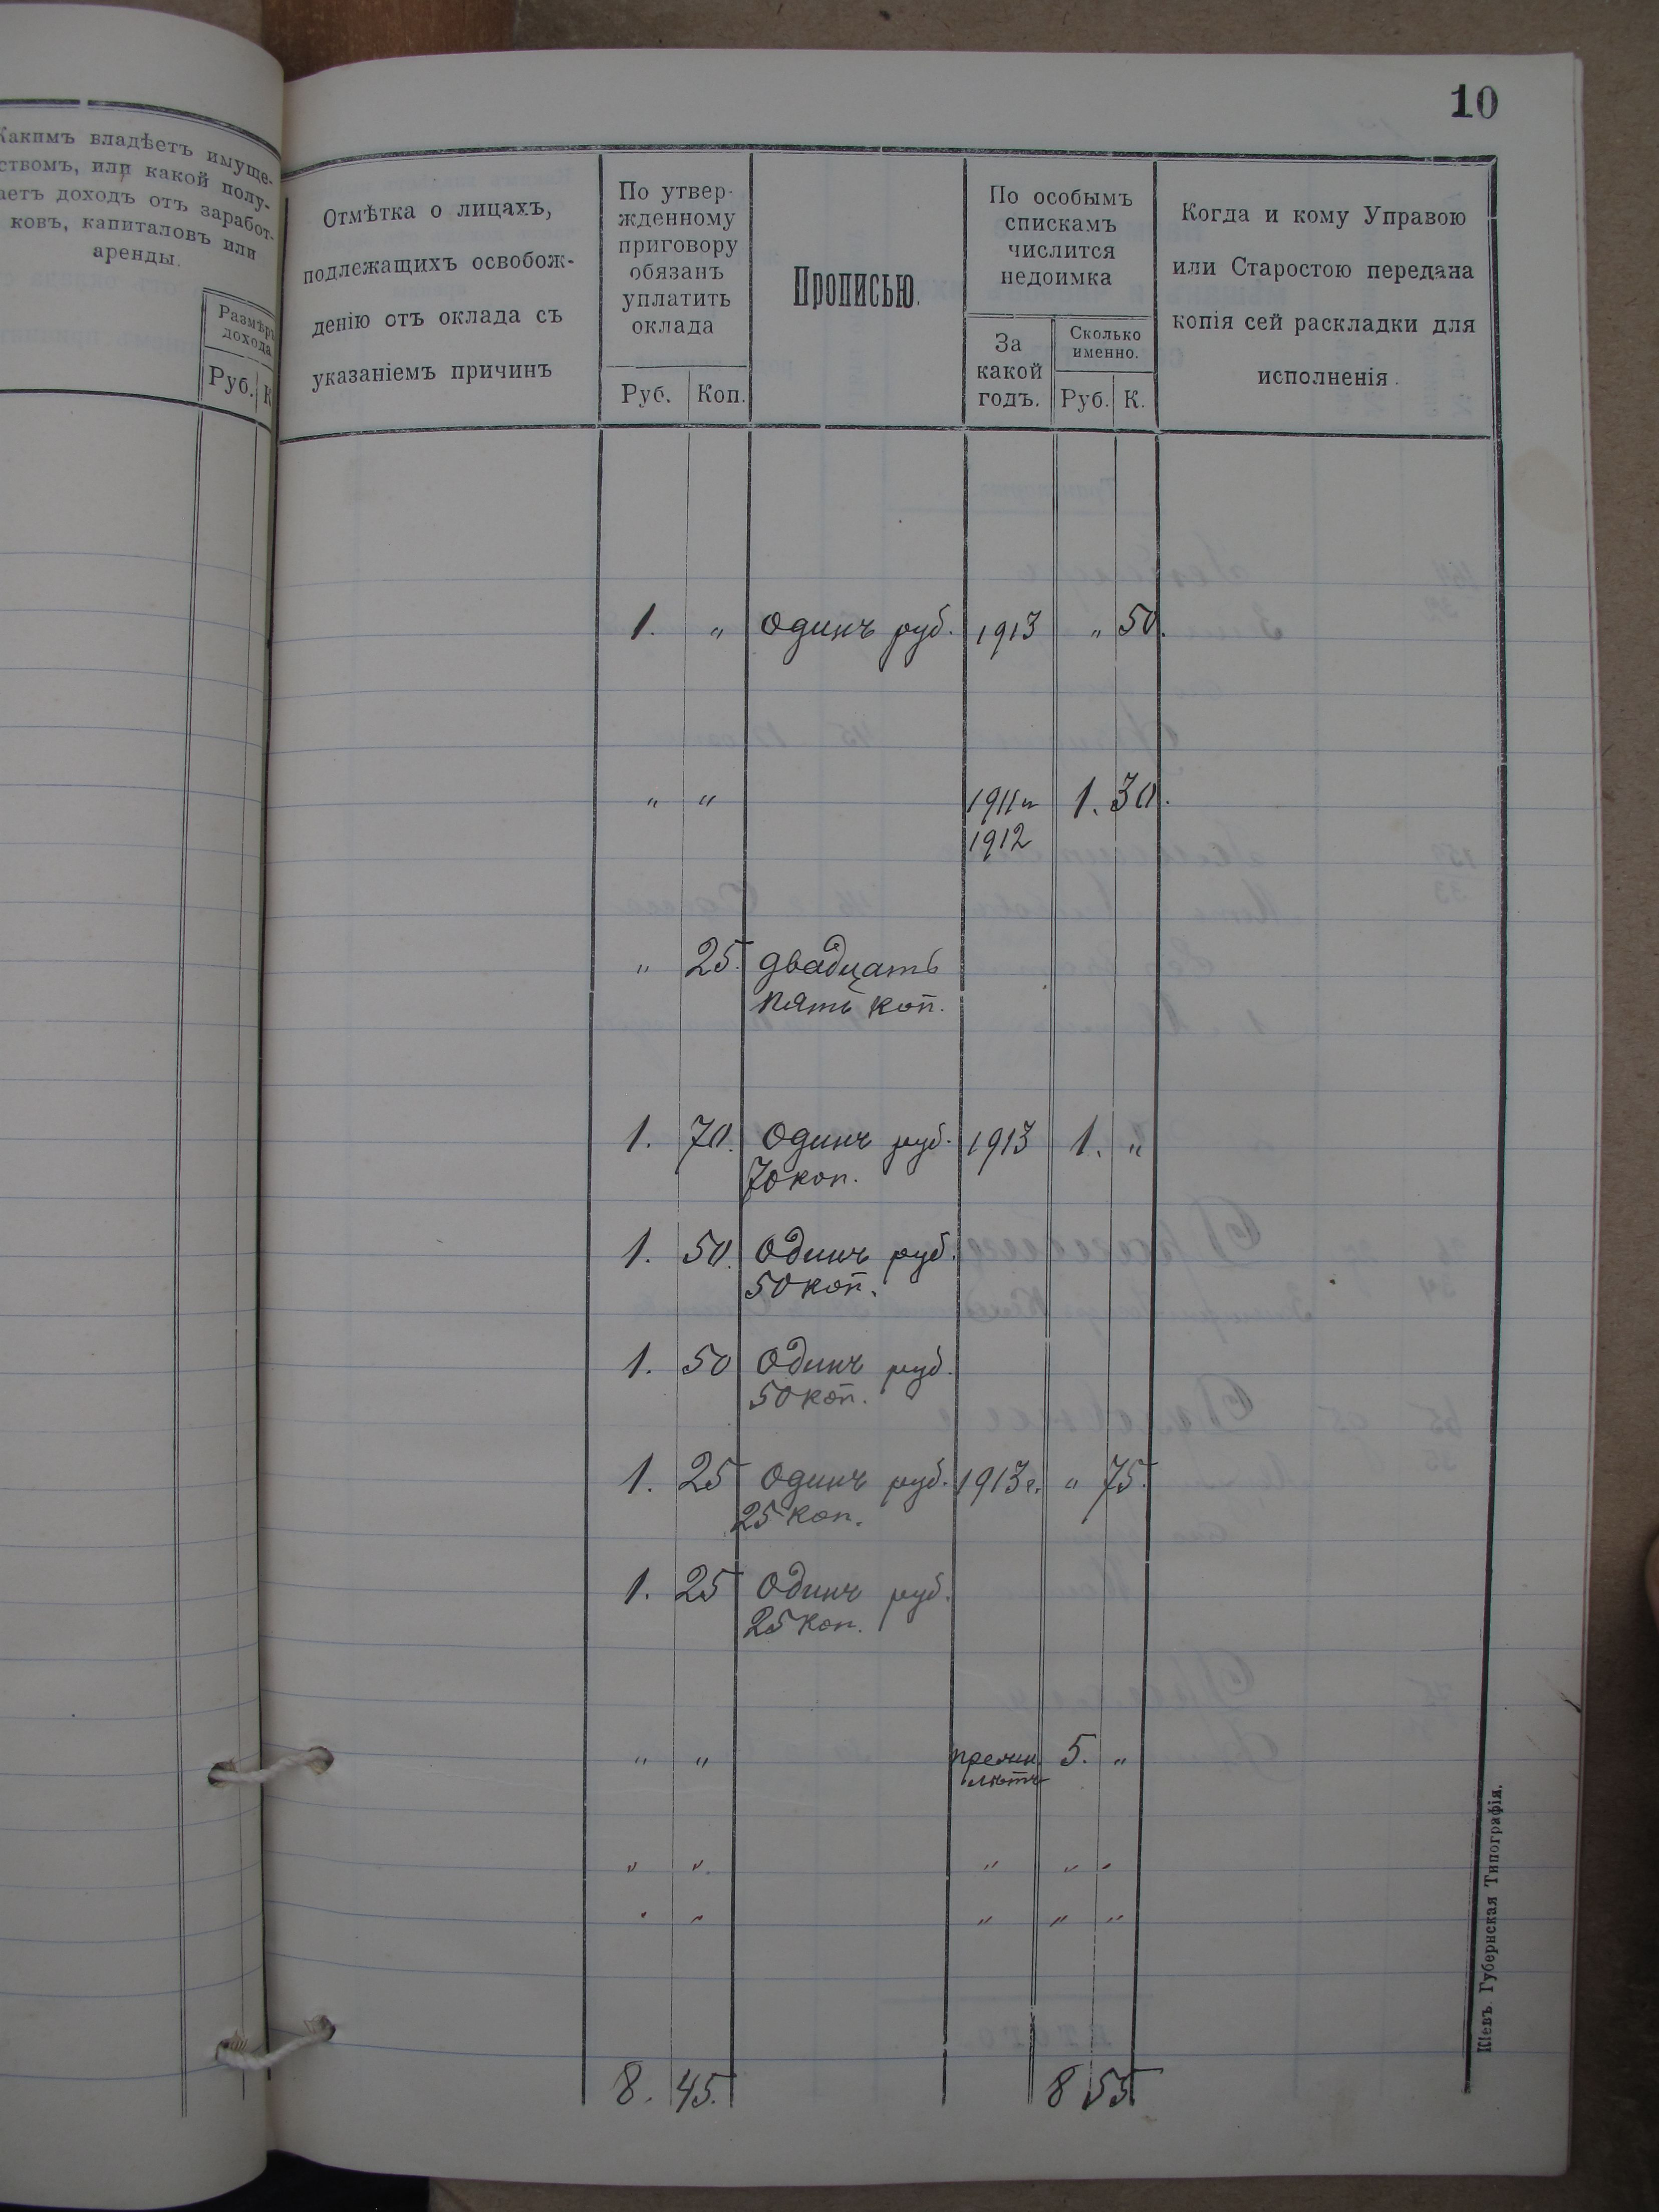 10
Какимъ владѣетъ имуще-
ствомъ, или какой полу-
аетъ доходъ отъ заработ-
ковъ, капиталовъ или
аренды.
Размѣръ
дохода
Руб. К
Отмѣтка о лицахъ,
подлежащихъ освобож-
денію отъ оклада съ
указаніемъ причинъ
По утвер-
жденному
приговору
обязанъ
уплатить
оклада
Руб. Коп.
Прописью.
По особымъ
спискамъ
числится
недоимка
За
какой
годъ.
Сколько
именно.
Руб. К.
Когда и кому Управою
или Старостою передана
копія сей раскладки для
исполненія.
1. " Одинъ руб. 1913 " 50.
" " 1911 и 1. 30.
1912
" 25. двадцать
пять коп.
1. 70. Одинъ руб. 1913 1. "
70 коп.
1. 50. Одинъ руб.
50 коп.
1. 50 Одинъ руб.
50 коп.
1. 25 Одинъ руб. 1913 г. " 75.
25 коп.
1. 25 Одинъ руб.
25 коп.
" " 5. "
лѣтъ
" " " " "
" " " " "
8. 45. 8 55
Кіевъ. Губернская Типографія.